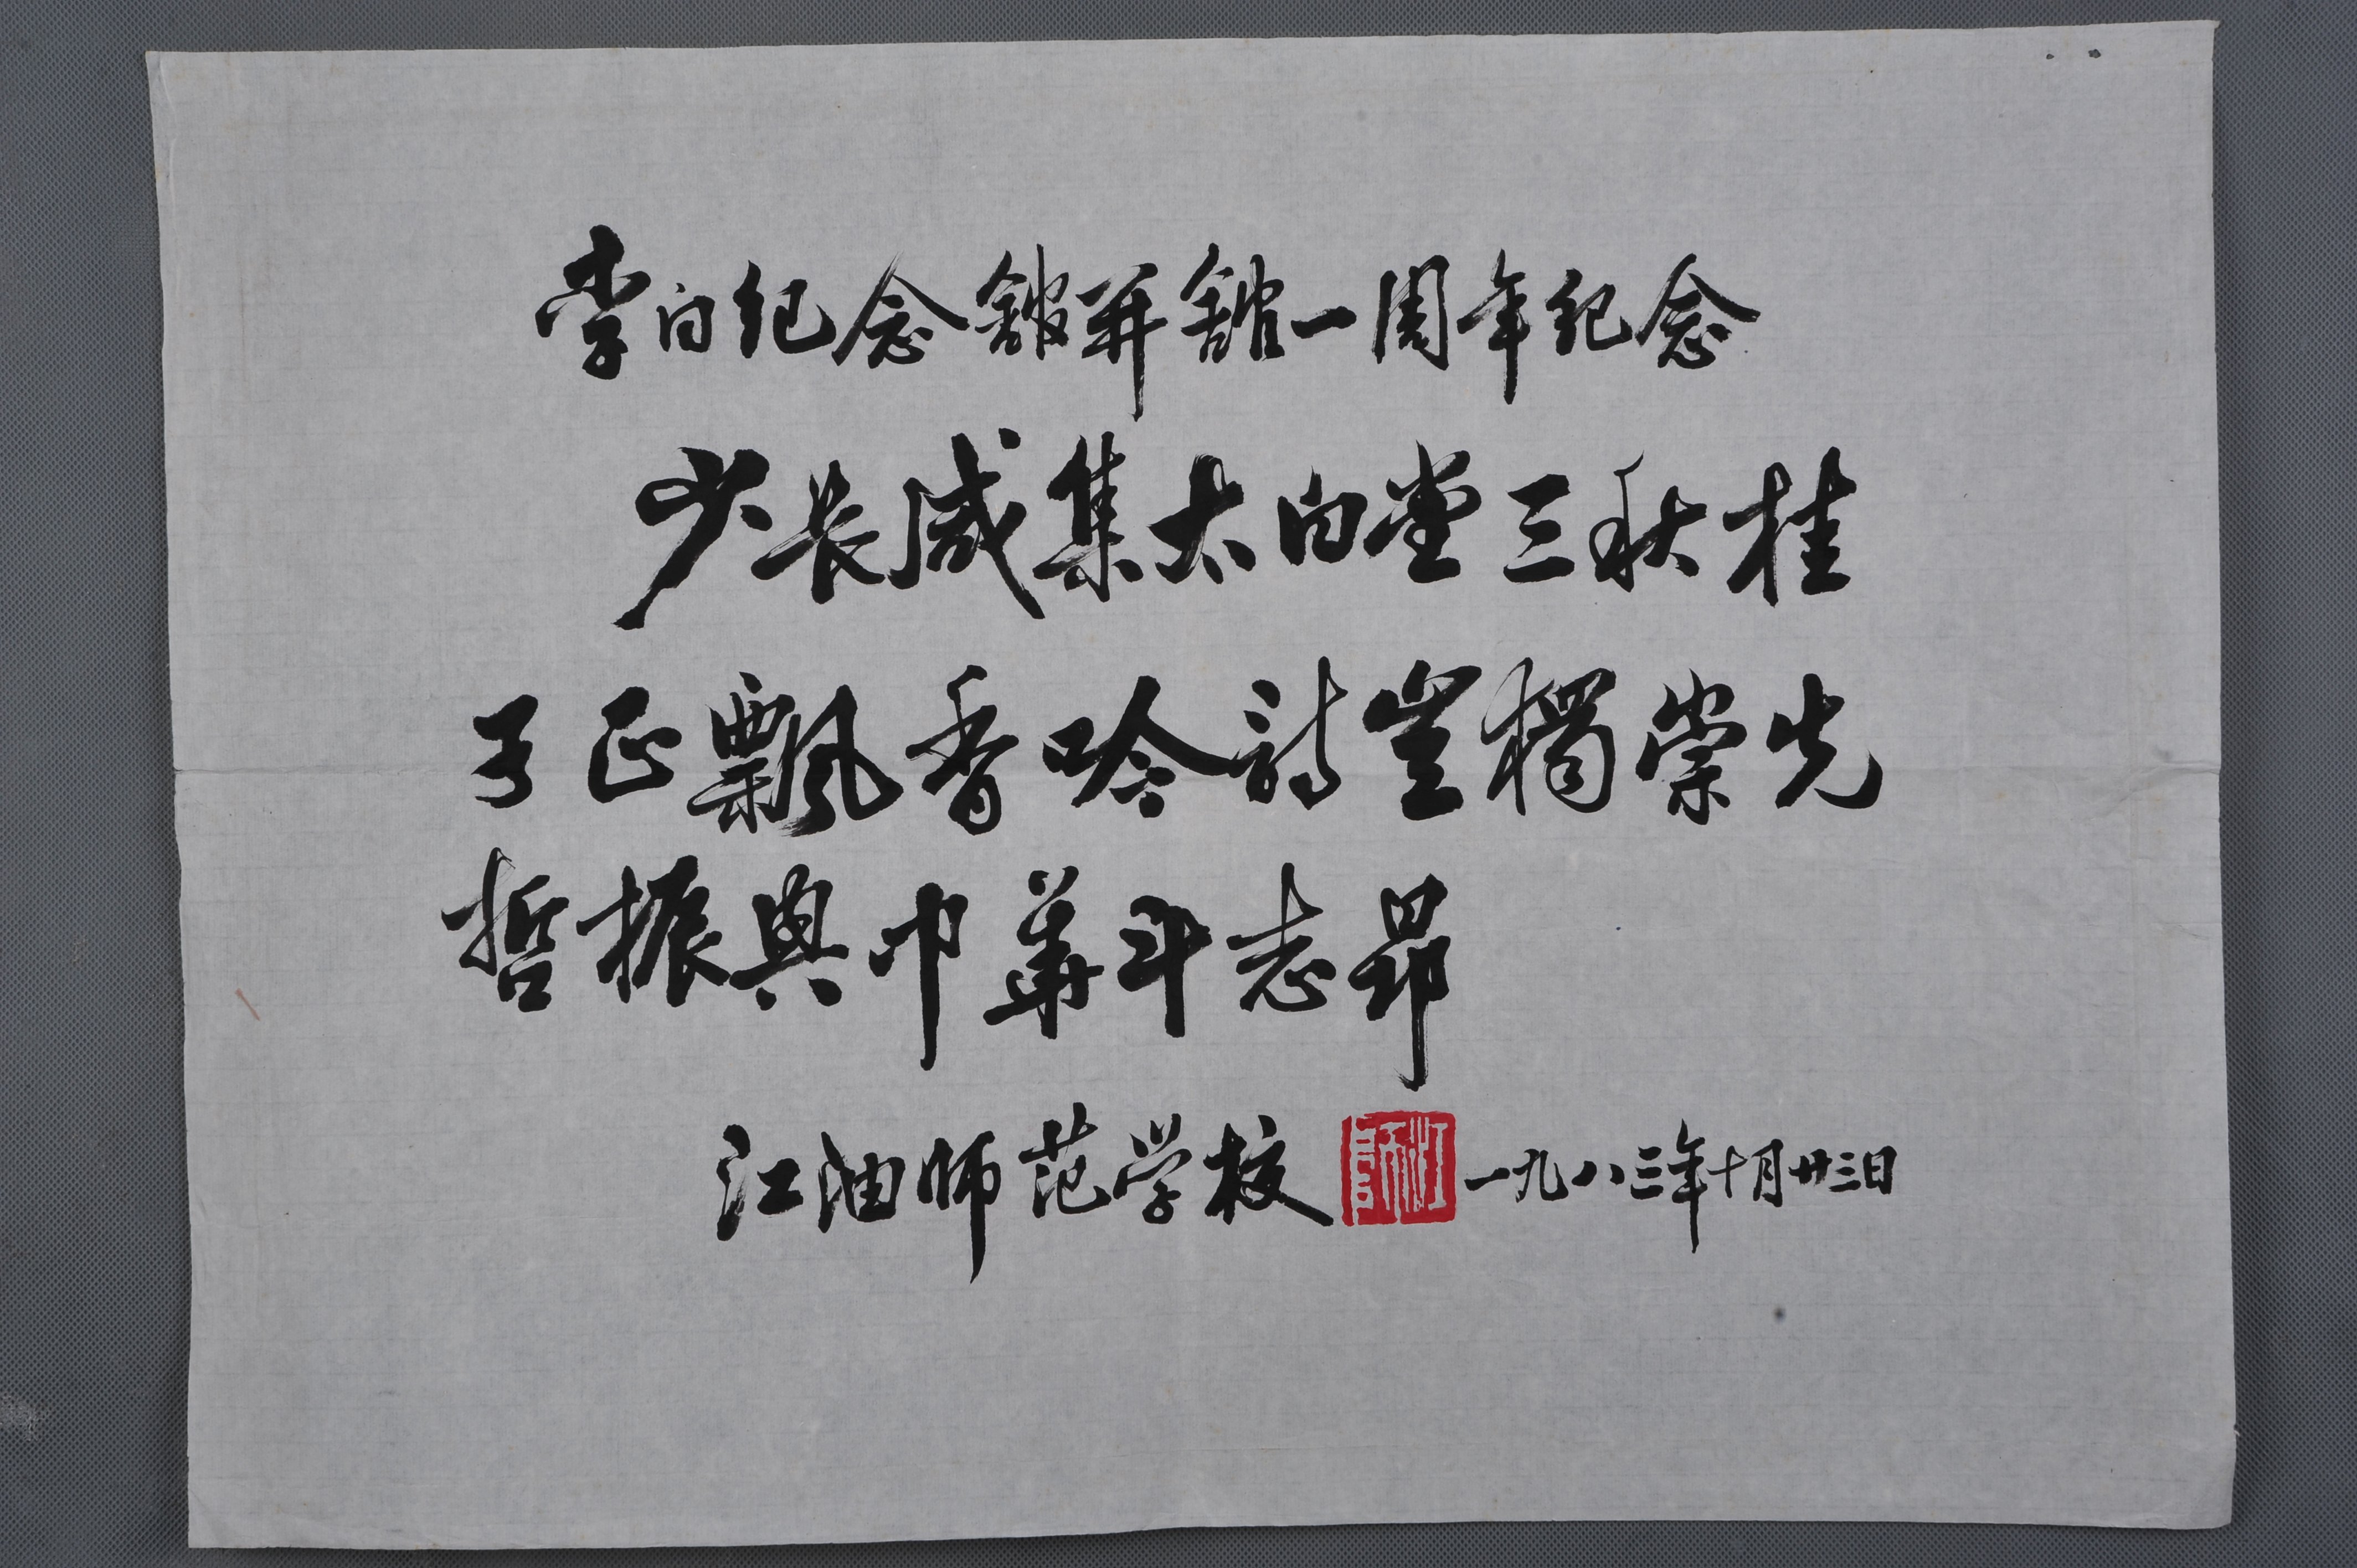 李白纪念馆开馆一周年纪念
少长咸集太白堂三秋桂
子正飘香吟詩豈獨崇先
哲振興中華斗志昂
江油师范学校 一九八三年十月廿三日